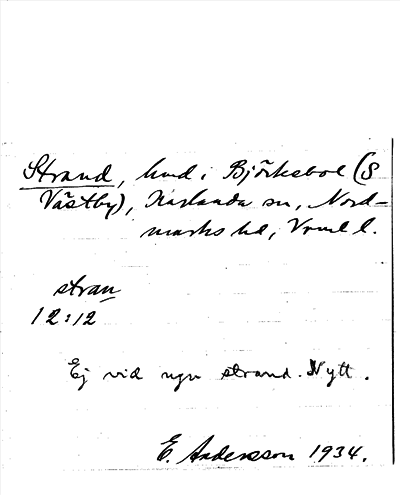 Strand, hmd i Björksbol (S
Västby), Karlanda sn, Nord-
marks hd, Vrml l.
stran
12:12
Ej vid ngn strand. Nytt.
E. Andersson 1934.